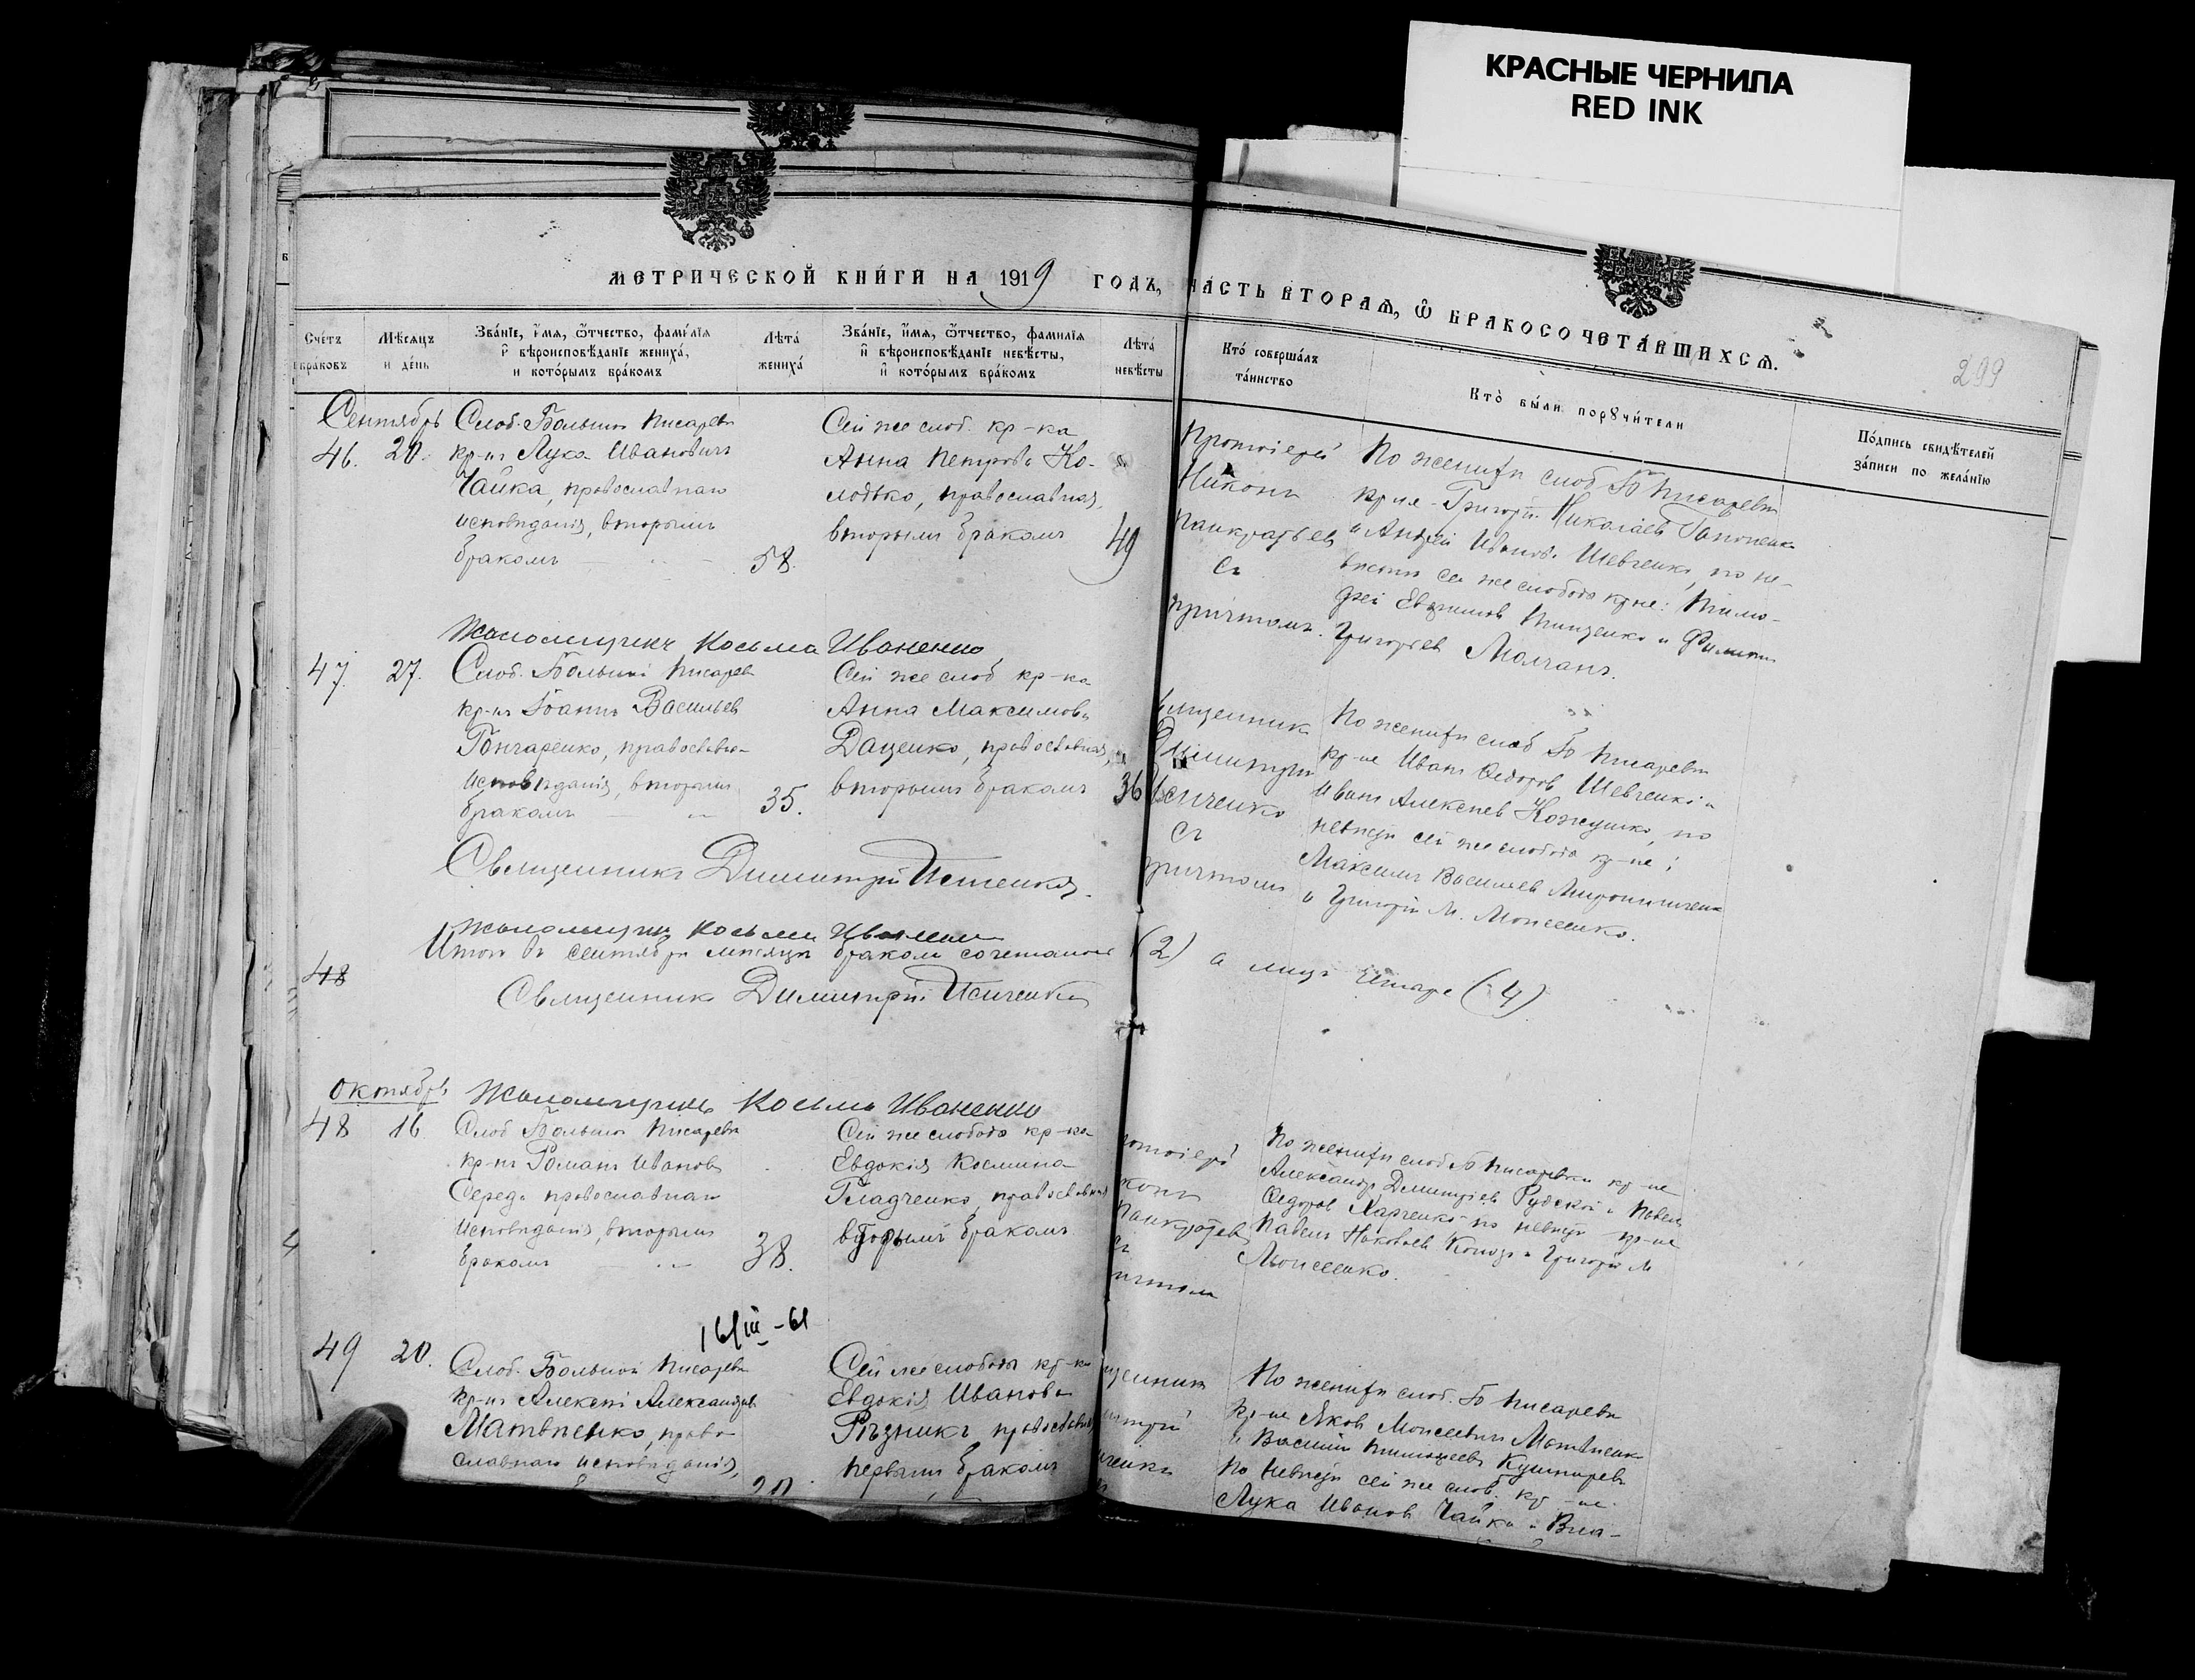 КРАСНЫЕ ЧЕРНИЛА
RED INK
МЕТРИЧЕСКОЙ КНИ́ГИ НА 1919 ГОДЪ, ЧА́СТЬ ВТОРАѦ, Ѡ БРАКОСОЧЕТА́ВШИХСѦ.
299
Сче́тъ браковъ
Мѣ́сѧцъ и де́нь
Зва́нїе, и҆́мѧ, ѻ҆́тчество, фами́лїѧ
и҆ вѣроисповѣ́данїе жениха̀,
и кото́рымъ бра́комъ
Лѣта̀ жениха̀
Зва́нїе, и҆́мѧ, ѻ҆́тчество, фамилїѧ
и҆ вѣроисповѣ́данїе невѣ́сты,
и҆ кото́рымъ бра́комъ
Лѣта̀ невѣ́сты
Кто̀ соверша́лъ
та́инство
Кто̀ бы́ли порꙋчи́тели
По́дпись свидѣ́телей
за́писи по жела́нїю
Сентябрь
46. 20.
Слоб. Большой Писарев
кр-нъ Лука Ивановъ
Чайка, православнаго
исповѣданія, вторымъ
бракомъ
58.
Сей же слоб. кр-ка
Анна Петрова Ко-
лодько, православная,
вторымъ бракомъ
49
Протоіерей
Никонъ
Панкратьев
съ
причтомъ.
По женихѣ слоб Б Писаревки
кр-не Григорій Николаев Гапоненко
и Андрей Иванов Шевченко, по не-
вѣстѣ сей же слободы кр-не: Тимо-
фей Евфимов Тищенко и Филипп
Григорьев Молчанъ.
Псаломщикъ Косьма Иваненко
47. 27.
Слоб. Большой Писарев
кр-нъ Іоаннъ Васильев
Гончаренко, православн.
исповѣданія, вторымъ
бракомъ
35.
Сей же слоб кр-ка
Анна Максимова
Даценко, православная,
вторымъ бракомъ
36
Священник
Димитрій
Исиченко
съ
причтомъ
По женихѣ слоб Б Писаревки
кр-не Иванъ Федоров Шевченко и
Иванъ Алексѣев Кожушко, по
невѣстѣ сей же слободы кр-не:
Максимъ Васильев
и Григорій М. Моисеенко.
Священникъ Димитрій Исиченко.
Псаломщикъ Косьма Иваненко
Итого въ сентябрѣ мѣсяцѣ браком сочеталось (2) а лицъ четыре (4)
48
Священник Димитрій Исиченко
Октябрь
Псаломщикъ Косьма Иваненко
48 16
Слоб Большой Писаревки
кр-нъ Романъ Иванов
Середа православнаго
исповѣданія, вторымъ
бракомъ
38.
Сей же слободы кр-ка
Евдокія Космина
Гладченко, православная
вторымъ бракомъ
отоіерей
конъ
Панкратьев
съ
ичтом
По женихѣ слоб Б Писаревки кр-не
Александр Димитріев Рудской и Павел
Федоров Харченко по невѣстѣ кр-не
Павелъ и Григорій М
Моисеенко.
16/III-61
49 20.
Слоб. Большой Писаревки
кр-нъ Алексѣй Александров
Матвѣенко, право-
славнаго исповѣданія,
20
Сей же слободы кр-ка
Евдокія Иванова
Рѣзникъ православная
первымъ бракомъ
щенник
итрій
иченко
По женихѣ слоб. Б Писаревки
кр-не Яков Моисеевич Матвѣенко
и Василій Тимофеев Кушнарев
по невѣстѣ сей же слоб. кр-не.
Лука Иванов Чайка и Вла-